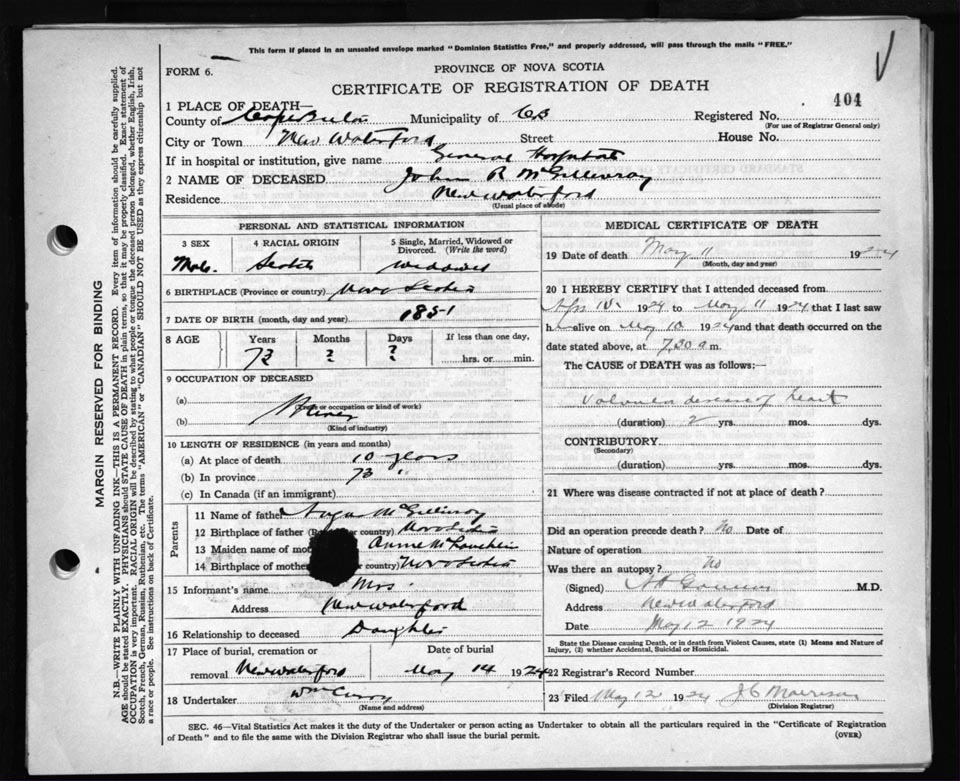 This form if placed in an unsealed envelope marked "Dominion Statistics Free," and properly addressed, will pass through the mails "FREE."
FORM 6.
PROVINCE OF NOVA SCOTIA
CERTIFICATE OF REGISTRATION OF DEATH
404
1 PLACE OF DEATH—
County of Cape Breton Municipality of CB Registered No.
(For use of Registrar General only)
City or Town New Waterford Street House No.
If in hospital or institution, give name General Hospital
2 NAME OF DECEASED John R McGillivray
Residence New Waterford
(Usual place of abode)
PERSONAL AND STATISTICAL INFORMATION
3 SEX 4 RACIAL ORIGIN 5 Single, Married, Widowed or Divorced. (Write the word)
Male Scotch widowed
6 BIRTHPLACE (Province or country) Nova Scotia
7 DATE OF BIRTH (month, day and year) 1851
8 AGE Years Months Days If less than one day,
73 ? ? hrs. or min.
9 OCCUPATION OF DECEASED
(a)
(Trade or occupation or kind of work)
(b) Miner
(Kind of industry)
10 LENGTH OF RESIDENCE (in years and months)
(a) At place of death 10 years
(b) In province 73 "
(c) In Canada (if an immigrant)
Parents
11 Name of father Angus McGillivray
12 Birthplace of father ( country) Nova Scotia
13 Maiden name of mot Annie
14 Birthplace of mother country) Nova Scotia
15 Informant's name Mrs.
Address New Waterford
16 Relationship to deceased Daughter
17 Place of burial, cremation or Date of burial
removal New Waterford May 14 1924
18 Undertaker Wm Curry
(Name and address)
MEDICAL CERTIFICATE OF DEATH
19 Date of death May 11 1924
(Month, day and year)
20 I HEREBY CERTIFY that I attended deceased from
Apr 1924 to May 11 1924 that I last saw
h alive on May 10 1924 and that death occurred on
date stated above, at 7.30 a m.
The CAUSE of DEATH was as follows:—
Valvular disease of heart
(duration) 2 yrs. mos. dys.
CONTRIBUTORY
(Secondary)
(duration) yrs. mos. dys.
21 Where was disease contracted if not at place of death?
Did an operation precede death? No Date of
Nature of operation
Was there an autopsy? No
(Signed) M.D.
Address New Waterford
Date May 12 1924
State the Disease causing Death, or in death from Violent Causes, state (1) Means and Nature of Injury, (2) whether Accidental, Suicidal or Homicidal.
22 Registrar's Record Number
23 Filed May 12 1924 J C Morrison
(Division Registrar)
SEC. 46—Vital Statistics Act makes it the duty of the Undertaker or person acting as Undertaker to obtain all the particulars required in the "Certificate of Registration
of Death" and to file the same with the Division Registrar who shall issue the burial permit. (OVER)
MARGIN RESERVED FOR BINDING
N.B.—WRITE PLAINLY WITH UNFADING INK—THIS IS A PERMANENT RECORD. Every item of information should be carefully supplied.
AGE should be stated EXACTLY. PHYSICIANS should STATE CAUSE OF DEATH in plain terms, so that it may be properly classified. Exact statement of
OCCUPATION is very important. RACIAL ORIGIN will be described by stating to what people or tongue the deceased person belonged, whether English, Irish,
Scotch, French, German, Russian, Ruthenian, etc. The terms "AMERICAN" or "CANADIAN" SHOULD NOT BE USED as they express citizenship but not
a race or people. See instructions on back of Certificate.